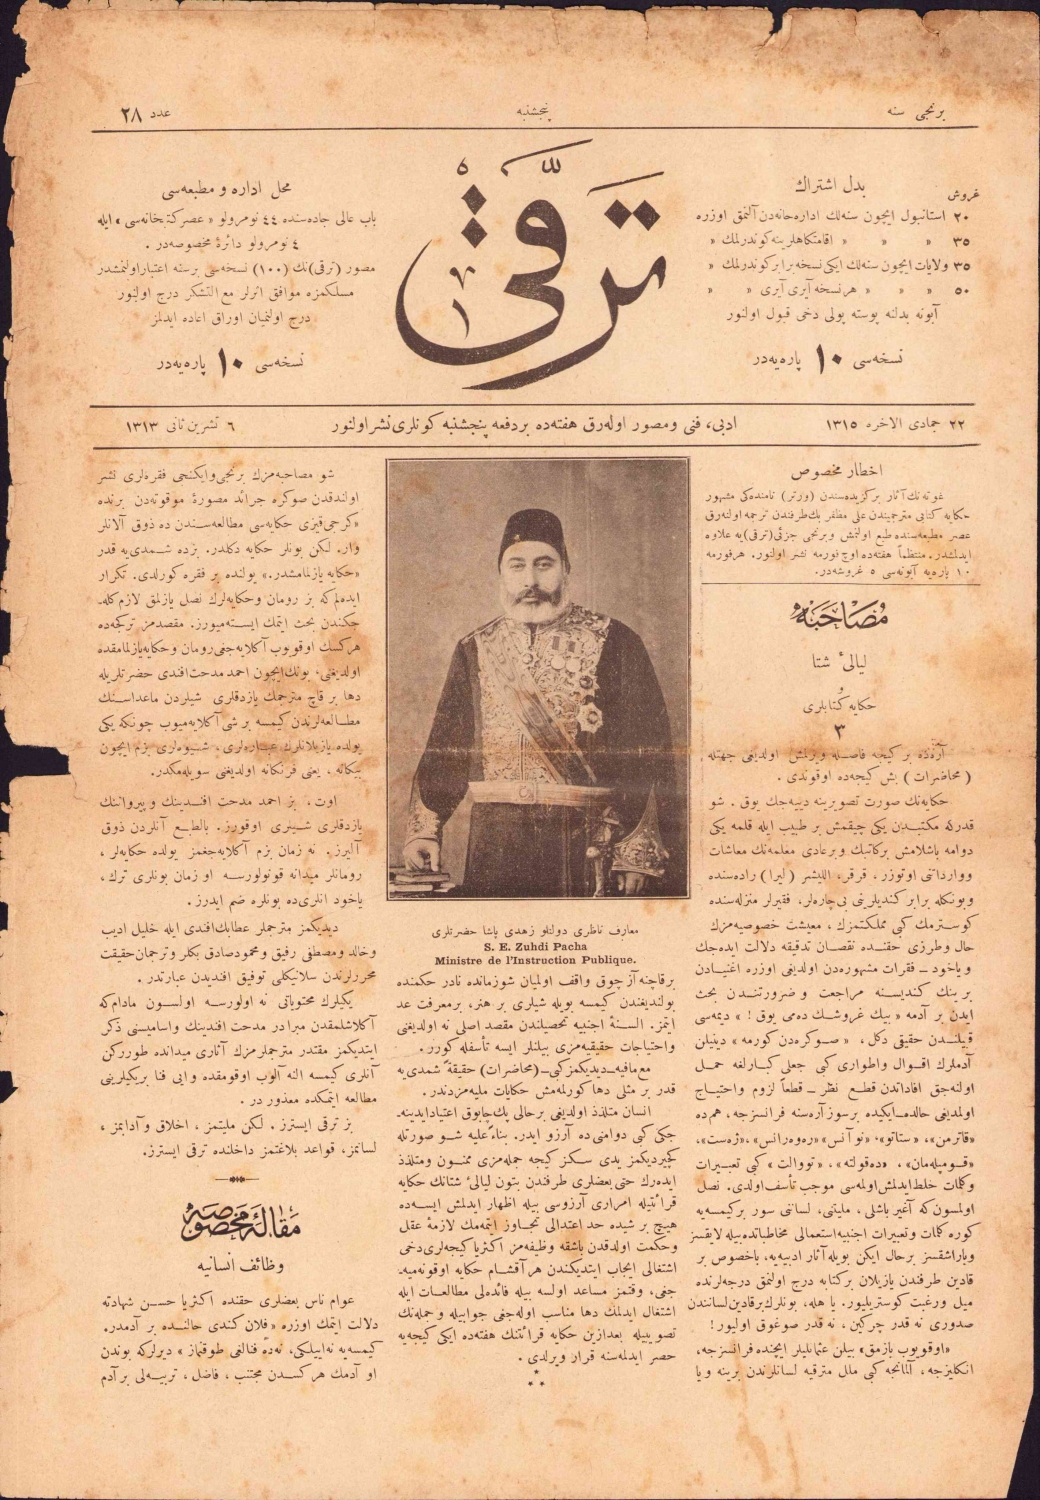 برنجی سنه
پنجشنبه
عدد ٢٨
غروش
بدل اشتراك
٢٠ استانبول ایچون سنه‌لك اداره‌خانه‌دن آلنمق اوزره
٣٥ « « « اقامتكاهلرینه كوندرلمك «
٣٥ ولایات ایچون سنه‌لك ایكی نسخه برابر كوندرلمك «
٥٠ « « « هر نسخه آیری آیری « «
آبونه بدلنه پوسته پولی دخی قبول اولنور
نسخه‌سی ١٠ پاره‌یه‌در
ترقی
محل اداره و مطبعه‌سی
باب عالی جاده‌سنده ٤٤ نومرولو « عصر كتبخانه‌سی » ایله
٤ نومرولو دائرهٔ مخصوصه‌در .
مصور (ترقی)نك (١٠٠) نسخه‌سی بر سنه اعتبار اولنمشدر
مسلكمزه موافق اثرلر مع التشكر درج اولنور
درج اولنمیان اوراق اعاده ایدلمز
نسخه‌سی ١٠ پاره‌یه‌در
٢٢ جمادی الاخره ١٣١٥
ادبی، فنی ومصور اوله‌رق هفته‌ده بر دفعه پنجشنبه كونلری نشر اولنور
٦ تشرین ثانی ١٣١٣
اخطار مخصوص
غوته‌نك آثار بركزیده‌سندن (ورتر) نامنده‌كی مشهور
حكایه كتابی مترجمیندن علی مظفر بك طرفندن ترجمه اولنه‌رق
عصر مطبعه‌سنده طبع اولنمش وبرنجی جزئی (ترقی)یه علاوه
ایدلمشدر. منتظماً هفته‌ده اوچ فورمه نشر اولنور. هر فورمه
١٠ پاره‌یه آبونه‌سی ٥ غروشه‌در.
مصاحبه
لیالیٔ شتا
و
حكایه كتابلری
٣
آره‌ده بر كیجه فاصله ویرلمش اولدیغی جهتله
( محاضرات ) بش كیجه‌ده اوقوندی .
حكایه‌نك صورت تصویرینه دینه‌جك یوق . شو
قدركه مكتبدن یكی چیقمش بر طبیب ایله قلمه یكی
دوامه باشلامش بر كاتبك وبر عادی معلمه‌نك معاشات
ووارداتنی اوتوزر ، قرقر، اللیشر (لیرا) راده‌سنده
وبونكله برابر كندیلرینی بی‌چاره‌لر، فقیرلر منزله‌سنده
كوسترمك كبی مملكتمزك ، معیشت خصوصیه‌مزك
حال وطرزی حقنده نقصان تدقیقه دلالت ایده‌جك
ویاخود ــ فقرات مشهوره‌دن اولدیغی اوزره اغنیادن
بر بنك كندیسنه مراجعت و ضرورتندن بحث
ایدن بر آدمه « بیك غروشك ده‌می یوق ! » دیمه‌سی
قبیلندن حقیقی دكل ، « صوكره‌دن كورمه » دینیلن
آدملرك اقوال واطواری كبی جعلی كبارلغه حمل
اولنه‌جق افاداتدن قطع نظر ــ قطعاً لزوم واحتیاج
اولمدیغی حالده ایكیده بر سوز آره‌سنه فرانسزجه، هم ده
كبی تعبیرات
وكلمات خلط ایدلمش اولمه‌سی موجب تأسف اولدی. نصل
اولمسون كه آغیر باشلی ، ملیتنی، لساننی سور بر كیمسه‌یه
كوره كلمات وتعبیرات اجنبیه استعمالی مخاطباتده بیله لایقسز
ویاراشقسز بر حال ایكن بویله آثار ادبیه‌یه، باخصوص بر
قادین طرفندن یازیلان بر كتابه درج اولنمق درجه‌لرنده
میل ورغبت كوستریلیور. یا هله، بونلرك بر قادین لسانندن
صدوری نه قدر چركین ، نه قدر صوغوق اولیور!
«اوقویوب یازمق» بیلن عثمانلیلر ایچنده فرانسزجه،
انكلیزجه ، آلمانجه كبی ملل مترقیه لسانلرندن برینه ویا
معارف ناظری دولتلو زهدی پاشا حضرتلری
S. E. Zuhdi Pacha
Ministre de l'Instruction Publique.
برقاچنه آز چوق واقف اولمیان شو زمانده نادر حكمنده
بولندیغندن كیمسه بویله شیلری بر هنر، بر معرفت عد
ایتمز. السنهٔ اجنبیه تحصیلندن مقصد اصلی نه اولدیغنی
واحتیاجات حقیقیه‌مزی بیلنلر ایسه تأسفله كورر .
مع مافیه ــ دیدیكمز كبی ــ (محاضرات) حقیقةً شمدی‌یه
قدر بر مثلی دها كورلمه‌مش حكایات ملیه‌مزدندر .
انسان متلذذ اولدیغی بر حالی پك چابوق اعتیاد ایدینه‌
جكی كبی دوامنی ده آرزو ایدر. بناءً علیه شو صورتله
كچیردیكمز یدی سكز كیجه جمله‌مزی ممنون ومتلذذ
ایده‌رك حتی بعضلری طرفندن بتون لیالیٔ شتانك حكایه
قرائتیله امراری آرزوسی بیله اظهار ایدلمش ایسه‌ده
هیچ بر شیده حد اعتدالی تجاوز ایتمه‌مك لازمهٔ عقل
وحكمت اولدقدن باشقه وظیفه‌مز اكثریا كیجه‌لری دخی
اشتغالی ایجاب ایتدیكندن هر آقشام حكایه اوقونه‌میه‌
جغی، وقتمز مساعد اولسه بیله فائده‌لی مطالعات ایله
اشتغال ایدلمك دها مناسب اوله‌جغی جوابیله وجمله‌نك
تصویبیله بعدازین حكایه قرائتنك هفته‌ده ایكی كیجه‌یه
حصر ایدلمه‌سنه قرار ویرلدی .
شو مصاحبه‌مزك برنجی وایكنجی فقره‌لری نشر
اولندقدن صوكره جرائد مصورهٔ موقوته‌دن برنده
حكایه‌سی مطالعه‌سندن ده ذوق آلانلر
وار. لكن بونلر حكایه دكلدر. بزده شمدی‌یه قدر
«حكایه یازلمامشدر.» یولنده بر فقره كورلدی. تكرار
ایده‌لم كه بز رومان وحكایه‌لرك نصل یازلمق لازم كله‌
جكندن بحث ایتمك ایسته‌میورز. مقصدمز تركجه‌ده
هركسك اوقویوب آكلایه‌جغی رومان وحكایه یازلمامقده
اولدیغنی، بونك ایچون احمد مدحت افندی حضرتلریله
دها بر قاچ مترجمك یازدقلری شیلردن ماعداسنك
مطالعه‌لرندن كیمسه بر شی آكلایه‌میوب چونكه یكی
یولده یازیلانلرك عباره‌لری ، شیوه‌لری بزم ایچون
بیكانه ، یعنی فرنكانه اولدیغنی سویله‌مكدر.
اوت ، بز احمد مدحت افندینك و پیرواننك
یازدقلری شیلری اوقورز. بالطبع آنلردن ذوق
آلیرز. نه زمان بزم آكلایه‌جغمز یولده حكایه‌لر ،
رومانلر میدانه قونولورسه او زمان بونلری ترك ،
یاخود آنلری ده بونلره ضم ایدرز .
دیدیكمز مترجملر عطا بك افندی ایله خلیل ادیب
وخالد ومصطفی رفیق ومحمود صادق بكلر وترجمان حقیقت
محررلرندن سلانیكلی توفیق افندیدن عبارتدر .
یكیلرك محتویاتی نه اولورسه اولسون مادام كه
آكلاشلمقدن مبرادر مدحت افندینك واسامیسنی ذكر
ایتدیكمز مقتدر مترجملرمزك آثاری میدانده طوررکن
آنلری كیمسه النه آلوب اوقومقده وایی فنا بریكیلرینی
مطالعه ایتمكده معذور در .
بز ترقی ایسترز . لكن ملیتمز ، اخلاق وآدابمز ،
لسانمز، قواعد بلاغتمز داخلنده ترقی ایسترز.
مقالهٔ مخصوصه
وظائف انسانیه
عوام ناس بعضلری حقنده اكثریا حسن شهادته
دلالت ایتمك اوزره « فلان كندی حالنده بر آدمدر.
كیمسه‌یه نه ایلیكی، نه‌ده فنالغی طوقنماز » دیرلركه بوندن
او آدمك هر كسدن مجتنب ، فاضل ، تربیه‌لی بر آدم